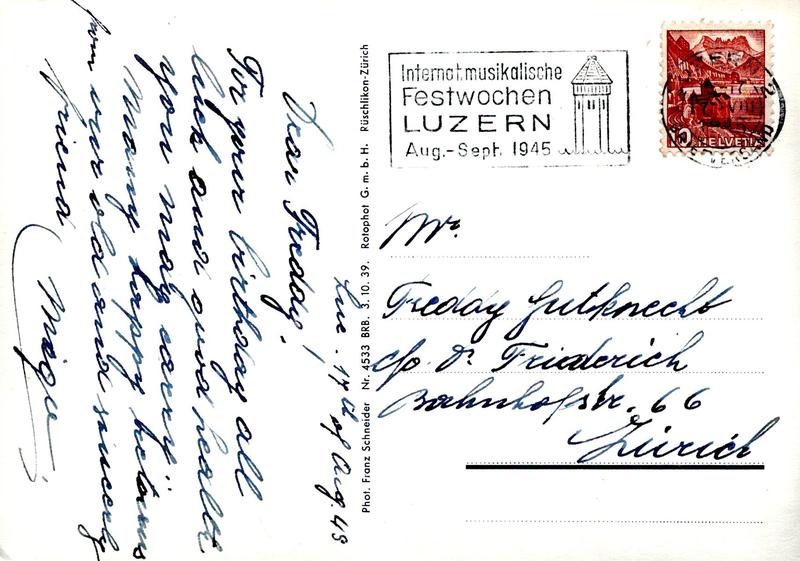 Luc. 17th of Aug. 45
Dear Freddy!
For your birthday all
luck and good health
you may carry!!
Many happy returns
from your old and sincerely
friend,
Phot. Franz Schneider Nr. 4533 BRB. 3.10.39. Rotophot G.m.b.H. Rüschlikon-Zürich
Internat.musikalische
Festwochen
LUZERN
Aug.-Sept. 1945
10 HELVETIA
Mr.
Freddy Gutknecht
c/o. Dr. Friederich
Bahnhofstr. 66
Zürich